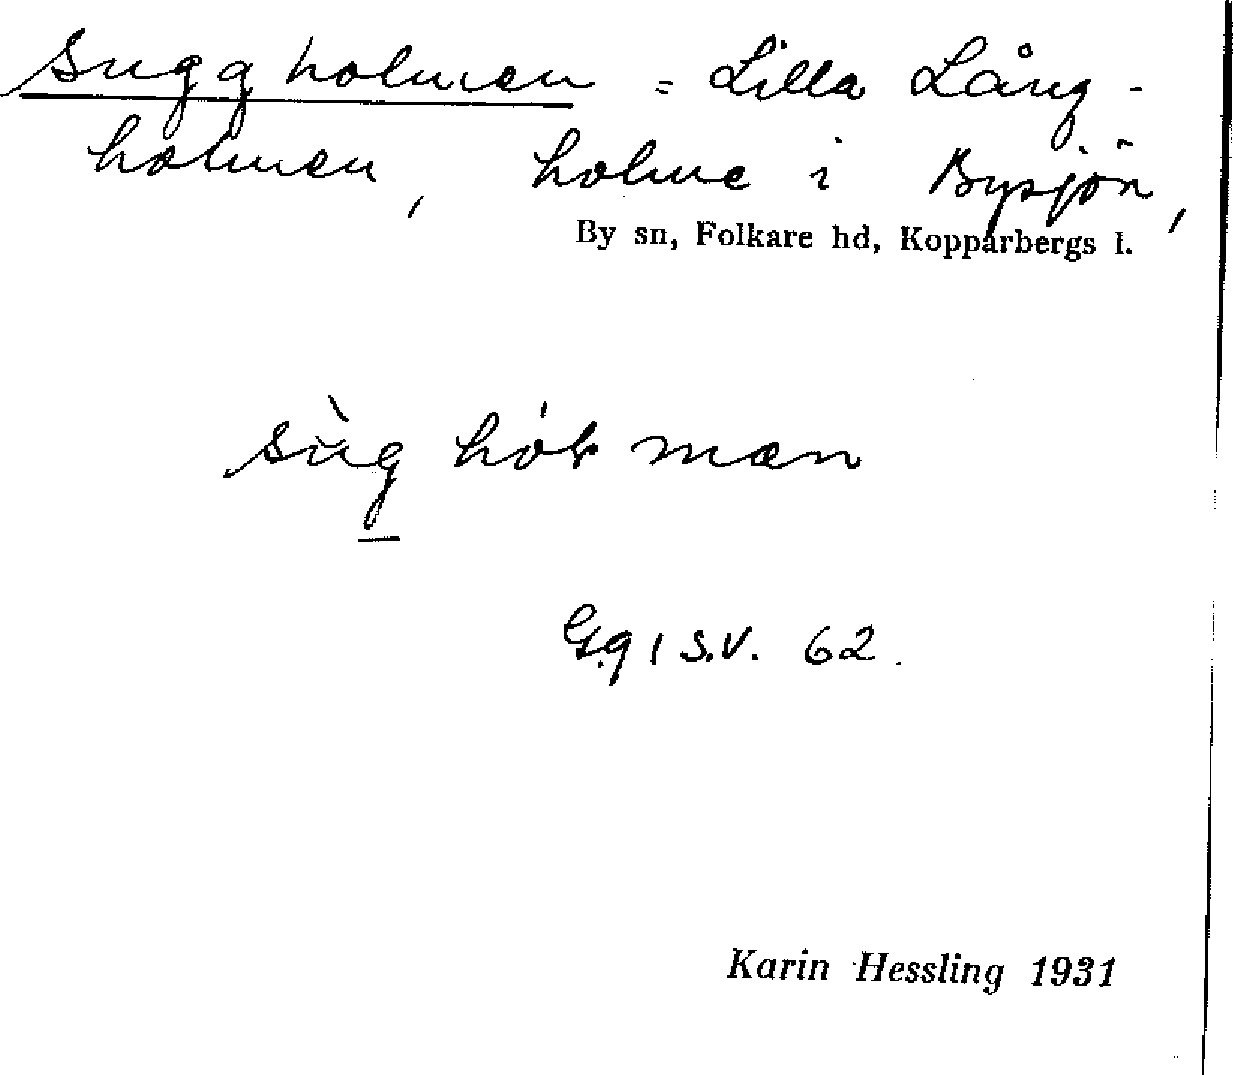 Suggholmen = Lilla Lång-
holmen, holme i Bysjön,
By sn, Folkare hd, Kopparbergs l.
sùg hòł mæn
G.g 1 S.V. 62.
Karin Hessling 1931